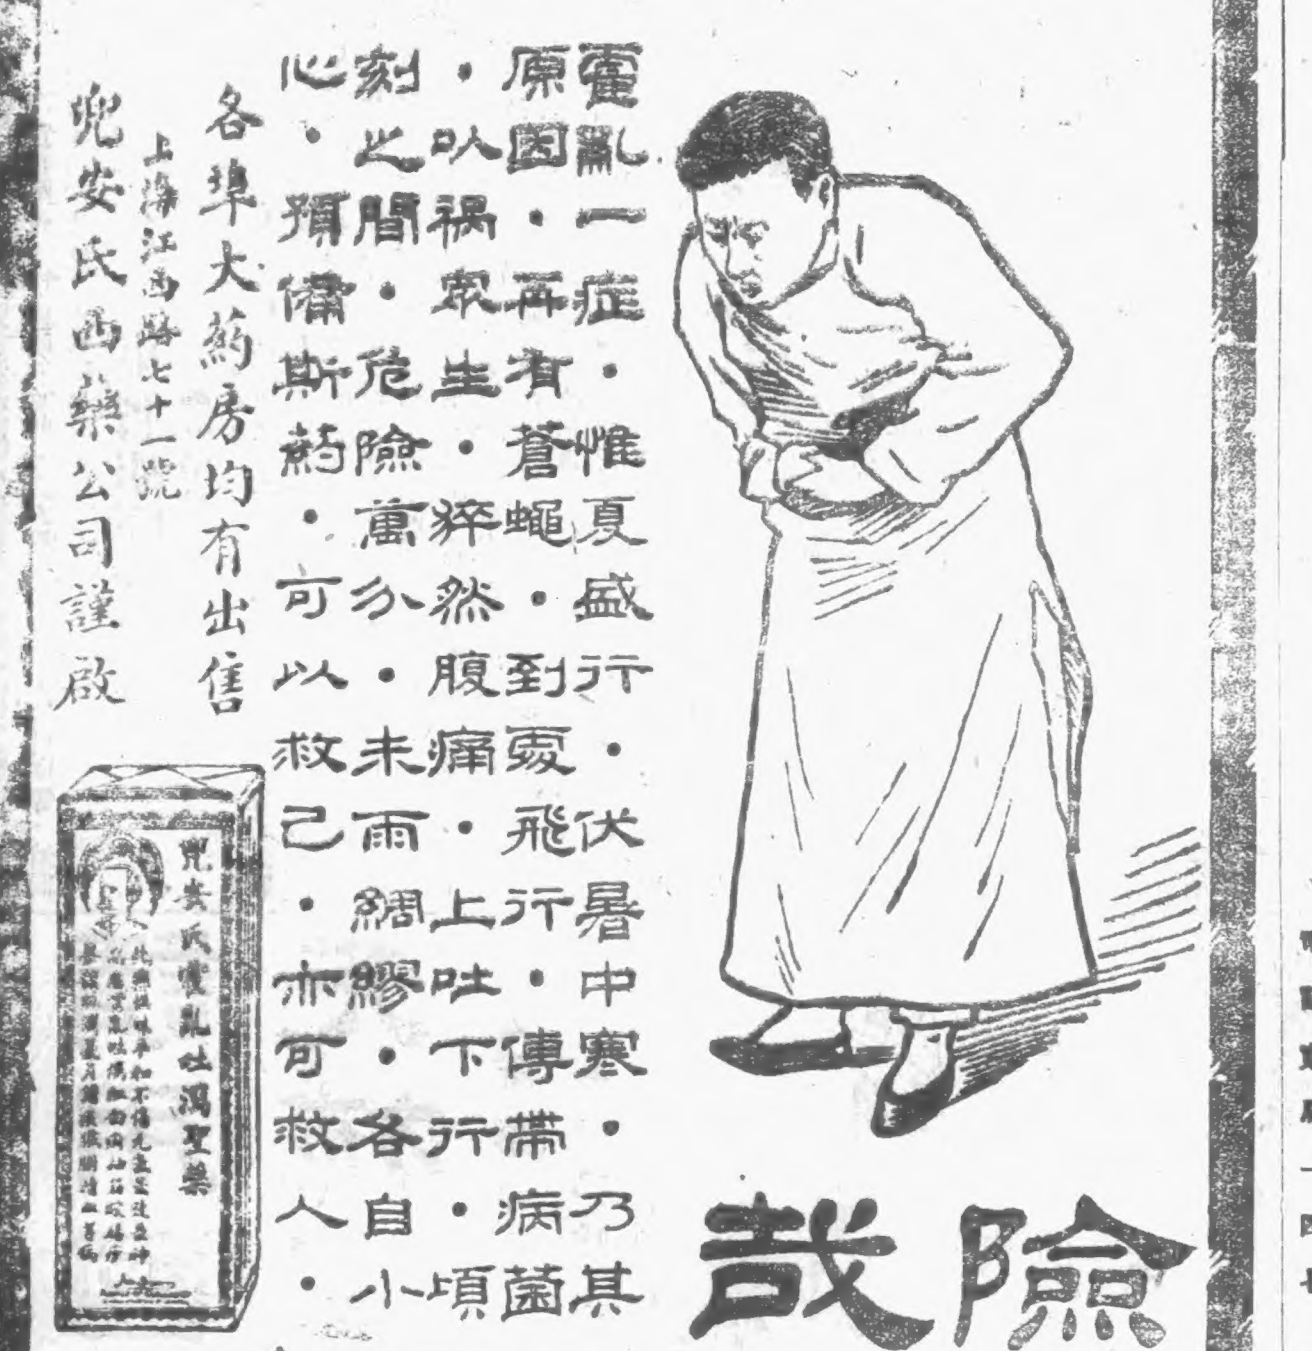 險哉
霍亂一症・惟夏盛行・伏暑中寒・乃其
原因・再有蒼蠅・到處飛行・傳帶病菌
・以禍眾生・猝然腹痛・上吐下行・頃
刻之間・危險萬分・未雨綢繆・各自小
心・預備斯葯・可以救己・亦可救人・
各埠大葯房均有出售
上海江西路七十一號
兜安氏西藥公司謹啟
兜安氏霍亂吐瀉聖藥